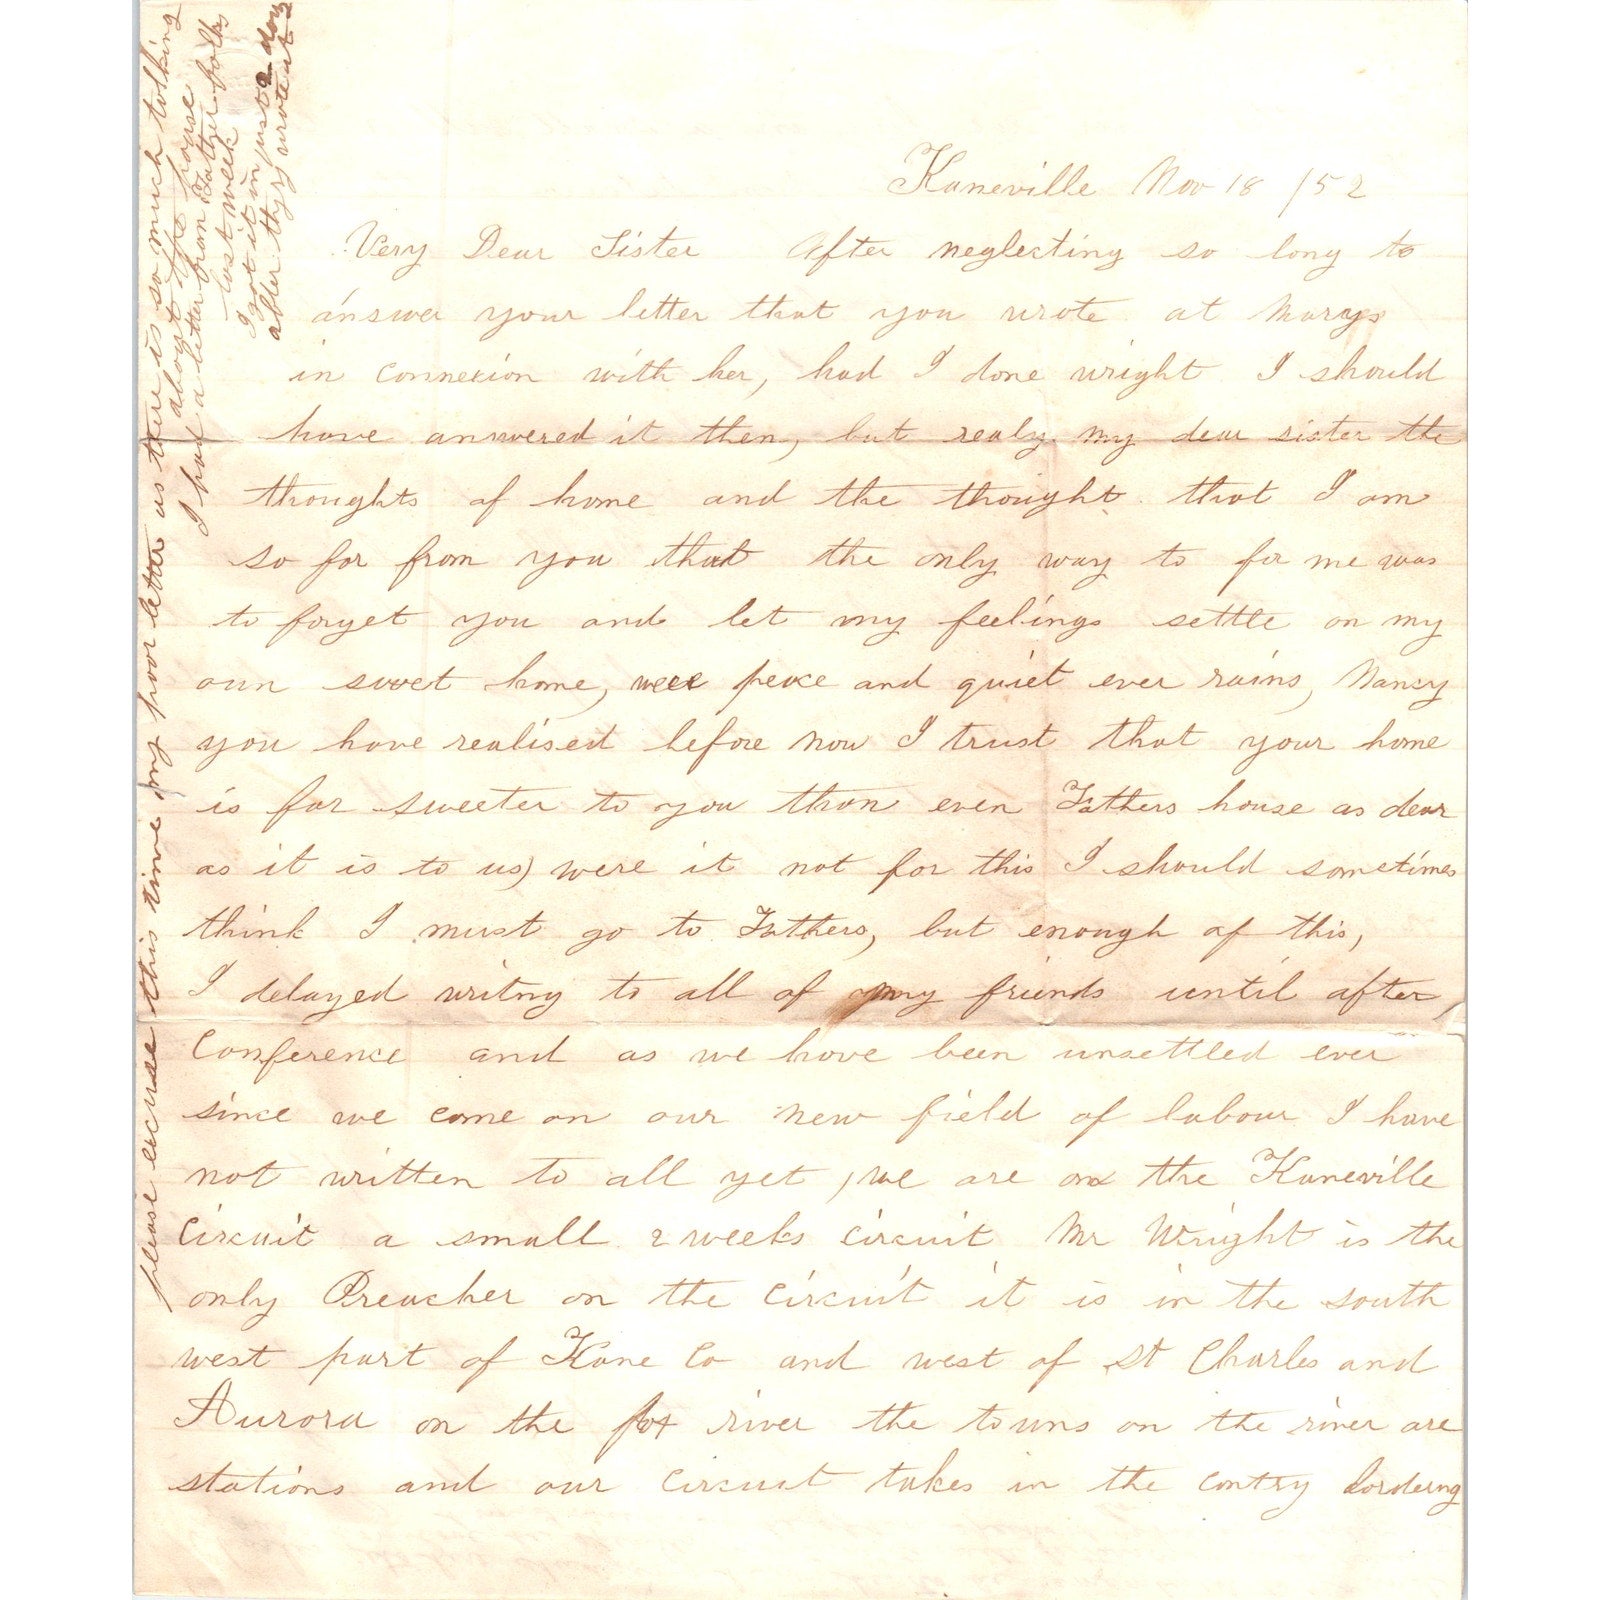 Kaneville Nov 18 /52
Very Dear Sister After neglecting so long to
answer your letter that you wrote at Marys
in connexion with her, had I done wright I should
have answered it then, but realy my dear sister the
thoughts of home and the thought that I am
so far from you that the only way to for me was
to forget you and let my feelings settle on my
own sweet home, were peace and quiet ever rains, Nancy
you have realised before now I trust that your home
is far sweeter to you than even Fathers house as dear
as it is to us) were it not for this I should sometimes
think I must go to Fathers, but enough of this,
I delayed writny to all of my friends until after,
Conference and as we have been unsettled ever
since we came on our new field of labour I have
not written to all yet, we are on the Kaneville
Circuit a small 2 weeks circuit Mr Wright is the
only Preacher on the Circuit it is in the south
west part of Kane Co and west of St Charles and
Aurora on the fox river the towns on the river are
stations and our circuit takes in the contry bordering
please excuse this time my poor letter as there is so much tolking
about the house
I had a letter from Father folks
last week
I got it in just 2 days
after they wrote it